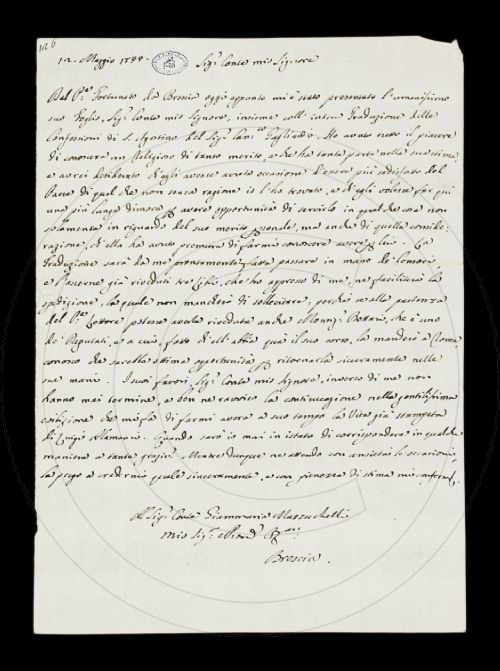 126
12. Maggio 17
Sig.r Conte mio Signore
Dal P.re Fortunato da Brescia oggi appunto mi è stato presentato l'umanissimo
suo foglio, Sig.r Conte mio Signore, insieme coll' Traduzione delle
Confessioni di S. Agostino del Sig.r Gagliardi. Ho avuto tutto il piacere
di conoscere un Religioso di tanto merito, e che ha tanta parte nella sua stima,
e avrei desiderato ch'egli avesse avuto occasione d'essere più sodisfatto del
Paese di quel che non senza ragione io l'ho trovato, e ch'egli volesse far qui
una più lunga dimora per avere opportunità di servirlo in qualche cosa non
solamente in riguardo del suo merito personale, ma anche di quella conside-
razione, ch'ella ha avuto premura di farmi conoscere avere per lui. La
Traduzione sarà da me prontamente fatta passare in mano de' Censori,
e l'averne già riveduti tre Libri, che ho appresso di me, ne faciliterà la
spedizione, la quale non mancherò di sollecitare, perché se alla partenza
del P.re Lettore potesse averla riveduta anche Monsig.r Bottari, che è uno
de' Deputati, e a cui, fatto ch'abbia qua il suo corso, la manderò a Roma,
conosco che sarebbe ottima opportunità per ritornarla sicuramente nelle
sue mani. I suoi favori, Sig.r Conte mio Signore, inverso di me non
hanno mai termine, e ben ne ravviso la continuazione nella gentilissima
esibizione che mi fa di farmi avere a suo tempo la Vita già stampata
di Luigi Alamanni. Quando sarò io mai in istato di corrispondere in qualche
maniera a tante grazie? Mentre dunque ne attendo con ansietà le occasioni,
la prego a credermi quale sinceramente, e con pienezza di stima mi confermo.
Al Sig.r Conte Giammaria Mazzuchelli
mio Sig.r e Pron.
Brescia.